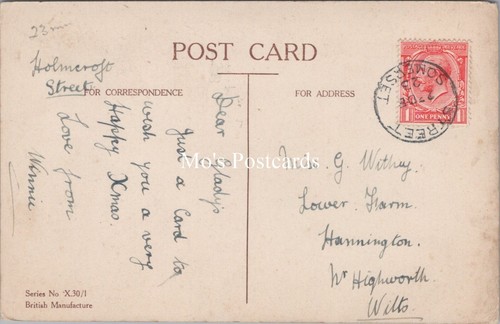 23
Holmcroft
Street
POST CARD
FOR CORRESPONDENCE
FOR ADDRESS
Dear Gladys
Just a Card to
wish you a very
Happy Xmas.
Love from
Winnie
Mo'sPostcards
STREET
SOMERSET
POSTAGE
ONE PENNY
Miss G. Withey
Lower Farm.
Hannington.
Nr Highworth.
Wilts.
Series No X.30/1
British Manufacture